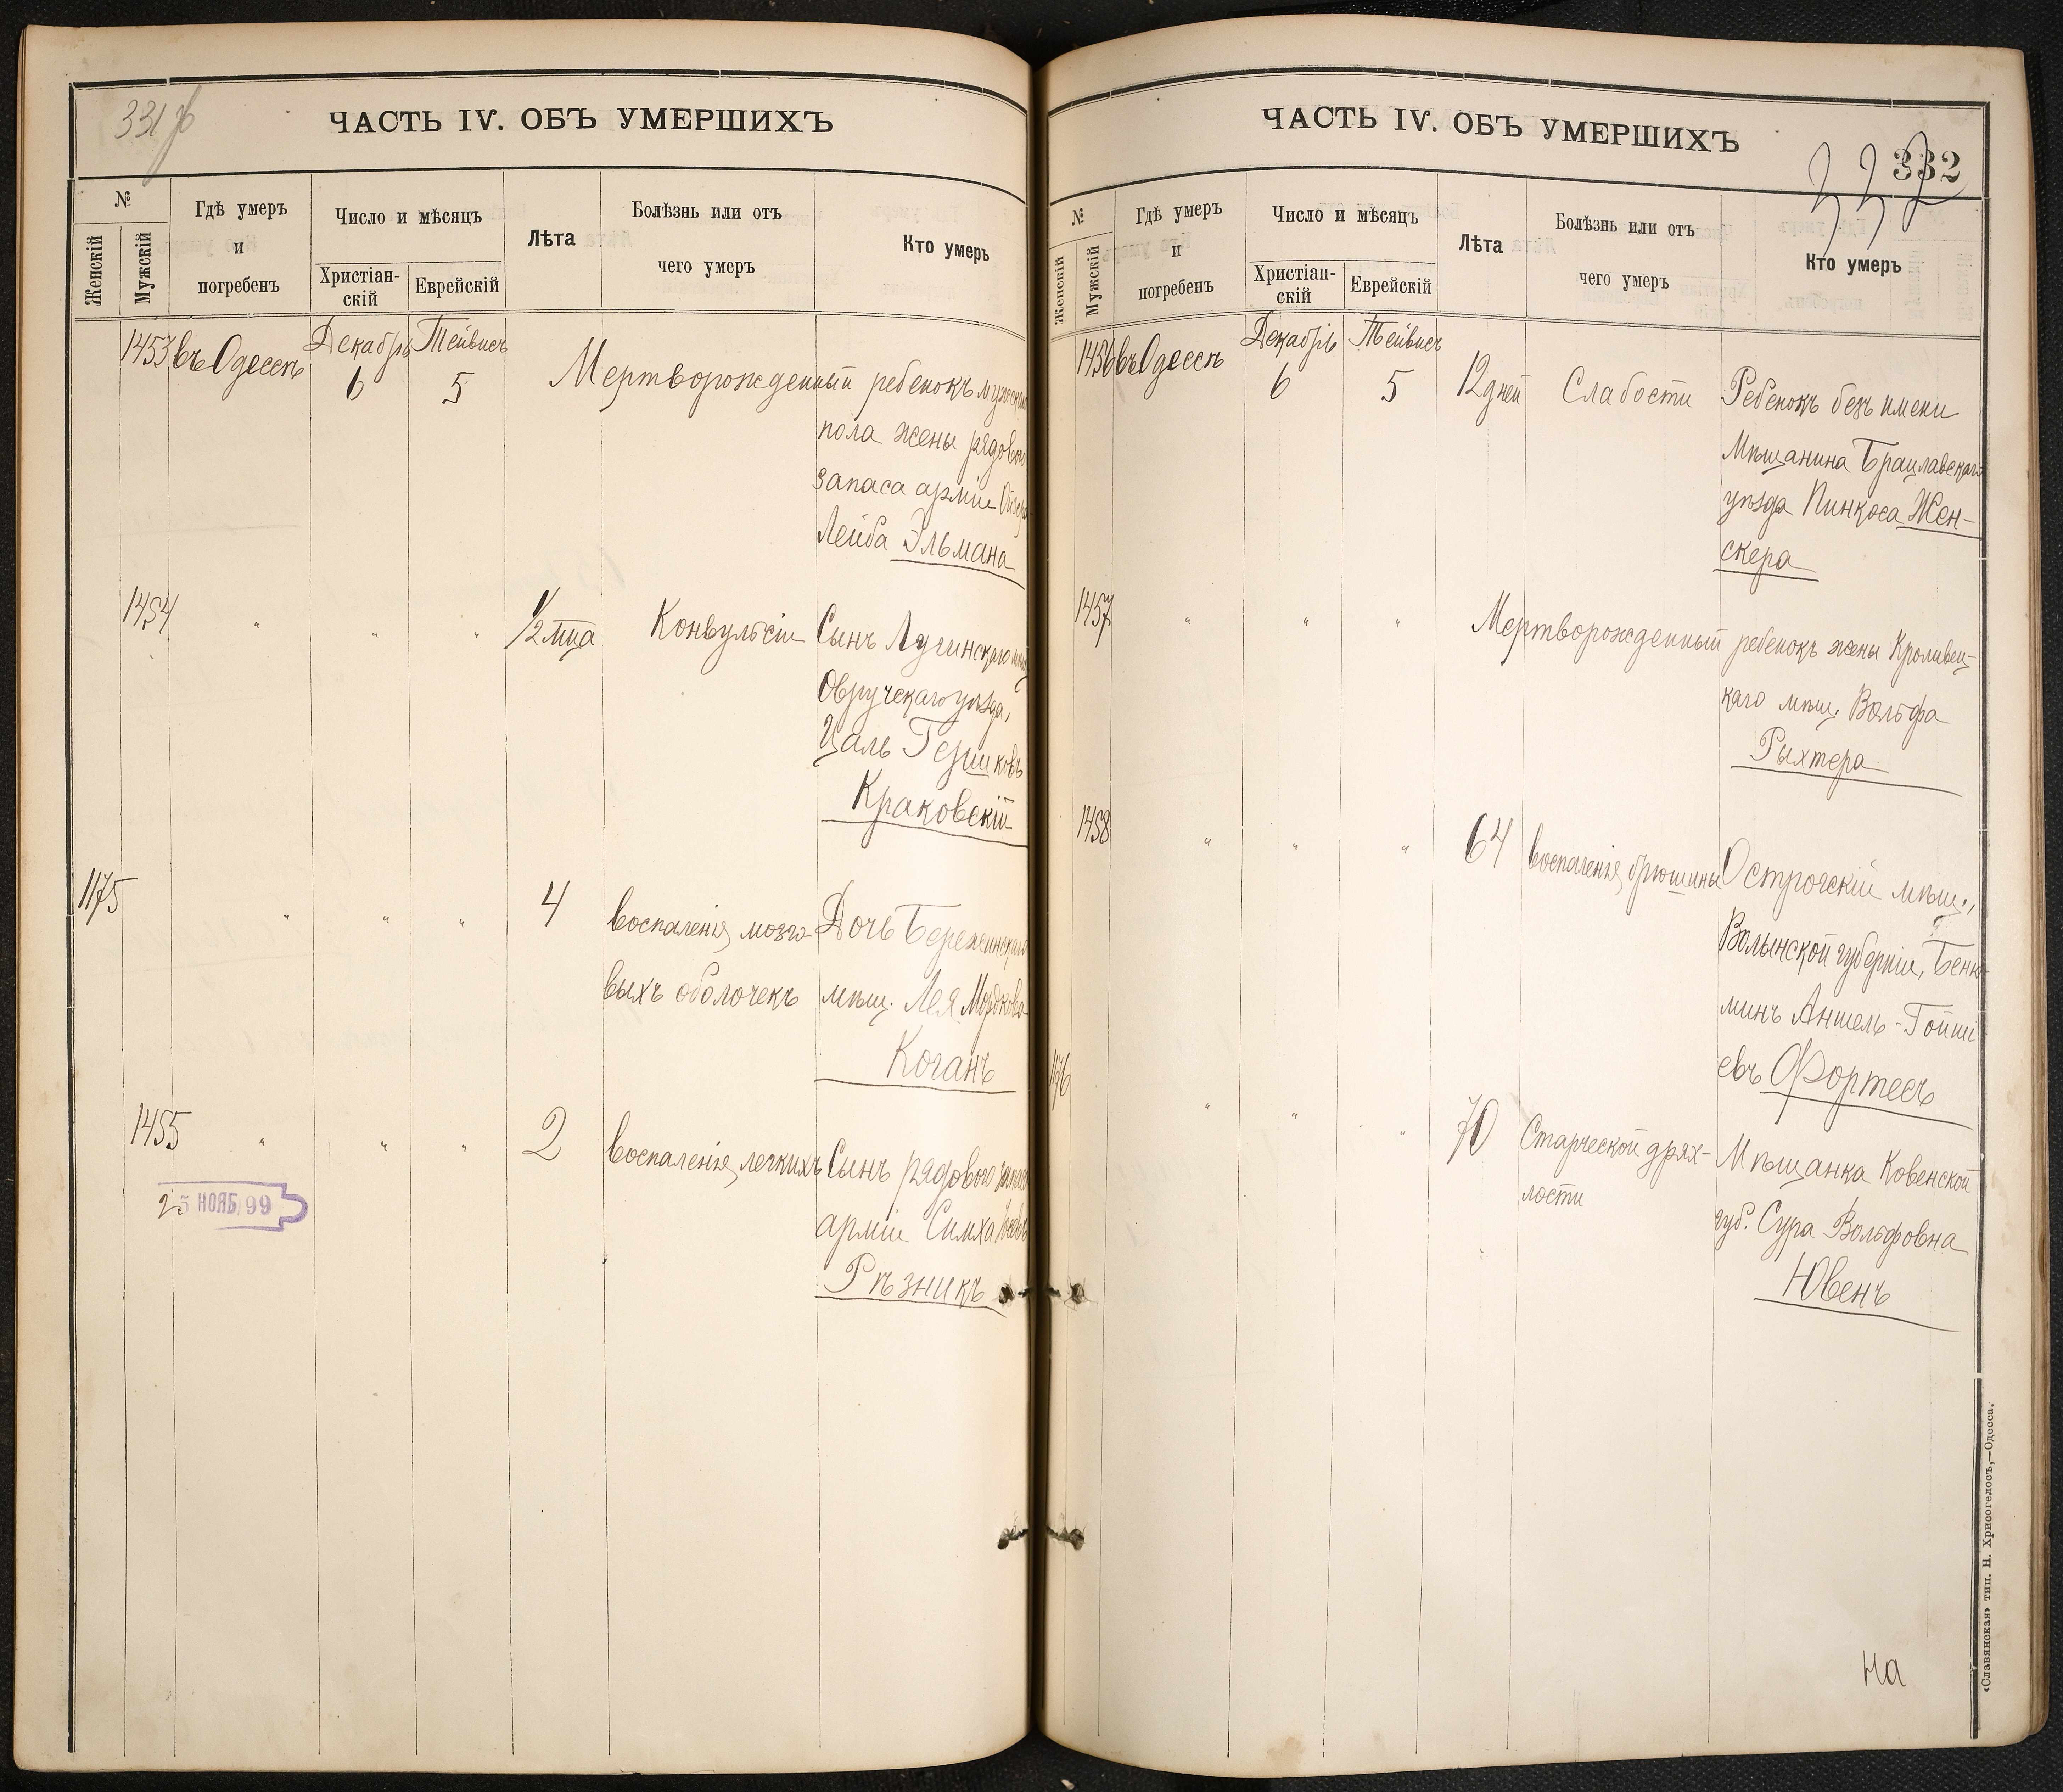 331
ЧАСТЬ IV. ОБЪ УМЕРШИХЪ
№
Женскій
Мужскій
Гдѣ умеръ
и
погребенъ
Число и мѣсяцъ
Христіан-
скій
Еврейскій
Лѣта
Болѣзнь или отъ
чего умеръ
Кто умеръ
1453 въ Одессѣ Декабрь Тейвисъ
6 5 Мертворожденный ребенокъ мужскаго
пола жены рядового
запаса арміи
Лейба Эльмана
1454 " " " 1/2 мца Конвульсіи Сынъ Лугинскаго мѣщ.
Овручскаго уѣзда,
Цаль Гершковъ
Краковскій
1175 " " " 4 воспаленія мозго- Дочь Березинскаго
выхъ оболочекъ мѣщ. Лея Мордкова
Коганъ
1455 " " " 2 воспаленія легкихъ Сынъ рядового запаса
арміи Симха
Рѣзникъ
25 НОЯБ. 99
ЧАСТЬ IV. ОБЪ УМЕРШИХЪ
332
332
№
Женскій
Мужскій
Гдѣ умеръ
и
погребенъ
Число и мѣсяцъ
Христіан-
скій
Еврейскій
Лѣта
Болѣзнь или отъ
чего умеръ
Кто умеръ
1456 въ Одессѣ Декабрь Тейвисъ
6 5 12 дней Слабости Ребенокъ безъ имени
Мѣщанина Брацлавскаго
уѣзда Пинкоса Жен-
скера
1457 " " " Мертворожденный ребенокъ жены Кролевец-
каго мѣщ. Вольфа
Рыхтера
1458 " " " 64 воспаленія брюшины Острогскій мѣщ.,
Волынской губерніи, Беню-
минъ Аншель-Гойши
евъ Фортесъ
1176 " " " 70 Старческой дрях- Мѣщанка Ковенской
лости губ. Сура Вольфовна
Ювенъ
На
«Славянская» тип. Н. Хрисогелосъ,—Одесса.